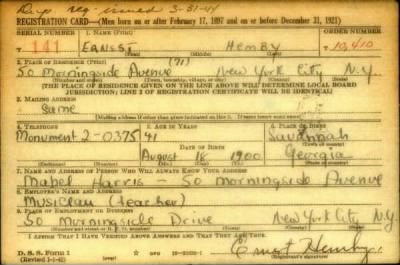 Dup reg - issued 3-31-44
REGISTRATION CARD—(Men born on or after February 17, 1897 and on or before December 31, 1921)
SERIAL NUMBER 1. NAME (Print) ORDER NUMBER
T 141 ERNSST HEMBY 10,410
2. PLACE OF RESIDENCE (Print) (71)
50 Morningside Avenue New York City N.Y.
[THE PLACE OF RESIDENCE GIVEN ON THE LINE ABOVE WILL DETERMINE LOCAL BOARD
JURISDICTION; LINE 2 OF REGISTRATION CERTIFICATE WILL BE IDENTICAL]
3. MAILING ADDRESS
Same
[Mailing address if other than place indicated on line 2. If same insert word same]
4. TELEPHONE 5. AGE IN YEARS 6. PLACE OF BIRTH
Monument 2-0375 41 Savannah
DATE OF BIRTH
August 18 1900 Georgia
7. NAME AND ADDRESS OF PERSON WHO WILL ALWAYS KNOW YOUR ADDRESS
Mabel Harris - 50 Morningside Avenue
8. EMPLOYER'S NAME AND ADDRESS
Musician (teacher)
9. PLACE OF EMPLOYMENT OR BUSINESS
50 Morningside Drive New York City N.Y.
I AFFIRM THAT I HAVE VERIFIED ABOVE ANSWERS AND THAT THEY ARE TRUE.
D. S. S. Form 1
(Revised 1-1-42) Ernest Hemby
(Registrant's signature)